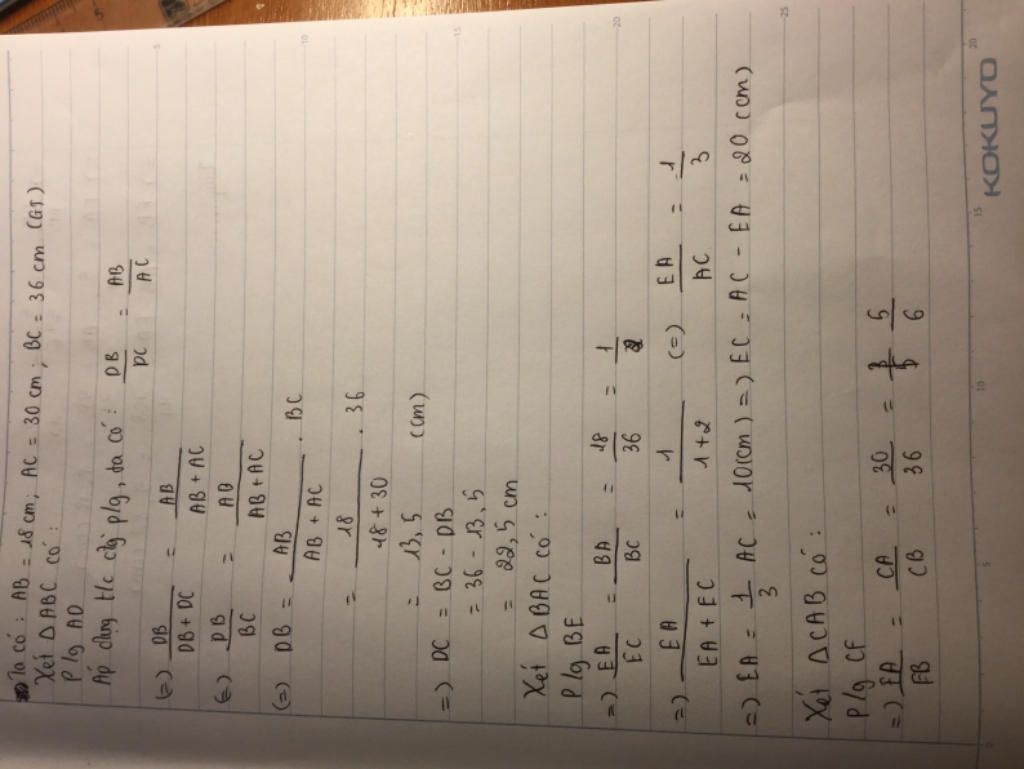 Ta có : AB = 18 cm ; AC = 30 cm ; BC = 36 cm (GT)
Xét △ABC có :
P/g AD
Áp dụng t/c của p/g, ta có : DB/DC = AB/AC
(=) DB/(DB + DC) = AB/(AB + AC)
(=) DB/BC = AB/(AB + AC)
(=) DB = AB/(AB + AC) . BC
= 18/(18 + 30) . 36
= 13,5 (cm)
=) DC = BC - DB
= 36 - 13,5
= 22,5 cm
Xét △BAC có :
P/g BE
=) EA/EC = BA/BC = 18/36 = 1/2
=) EA/(EA + EC) = 1/(1+2) (=) EA/AC = 1/3
=) EA = 1/3 AC = 10(cm) =) EC = AC - EA = 20 (cm)
Xét △CAB có :
P/g CF
=) FA/FB = CA/CB = 30/36 = 5/6
5
10
15
20
25
0
5
10
15
20
KOKUYO